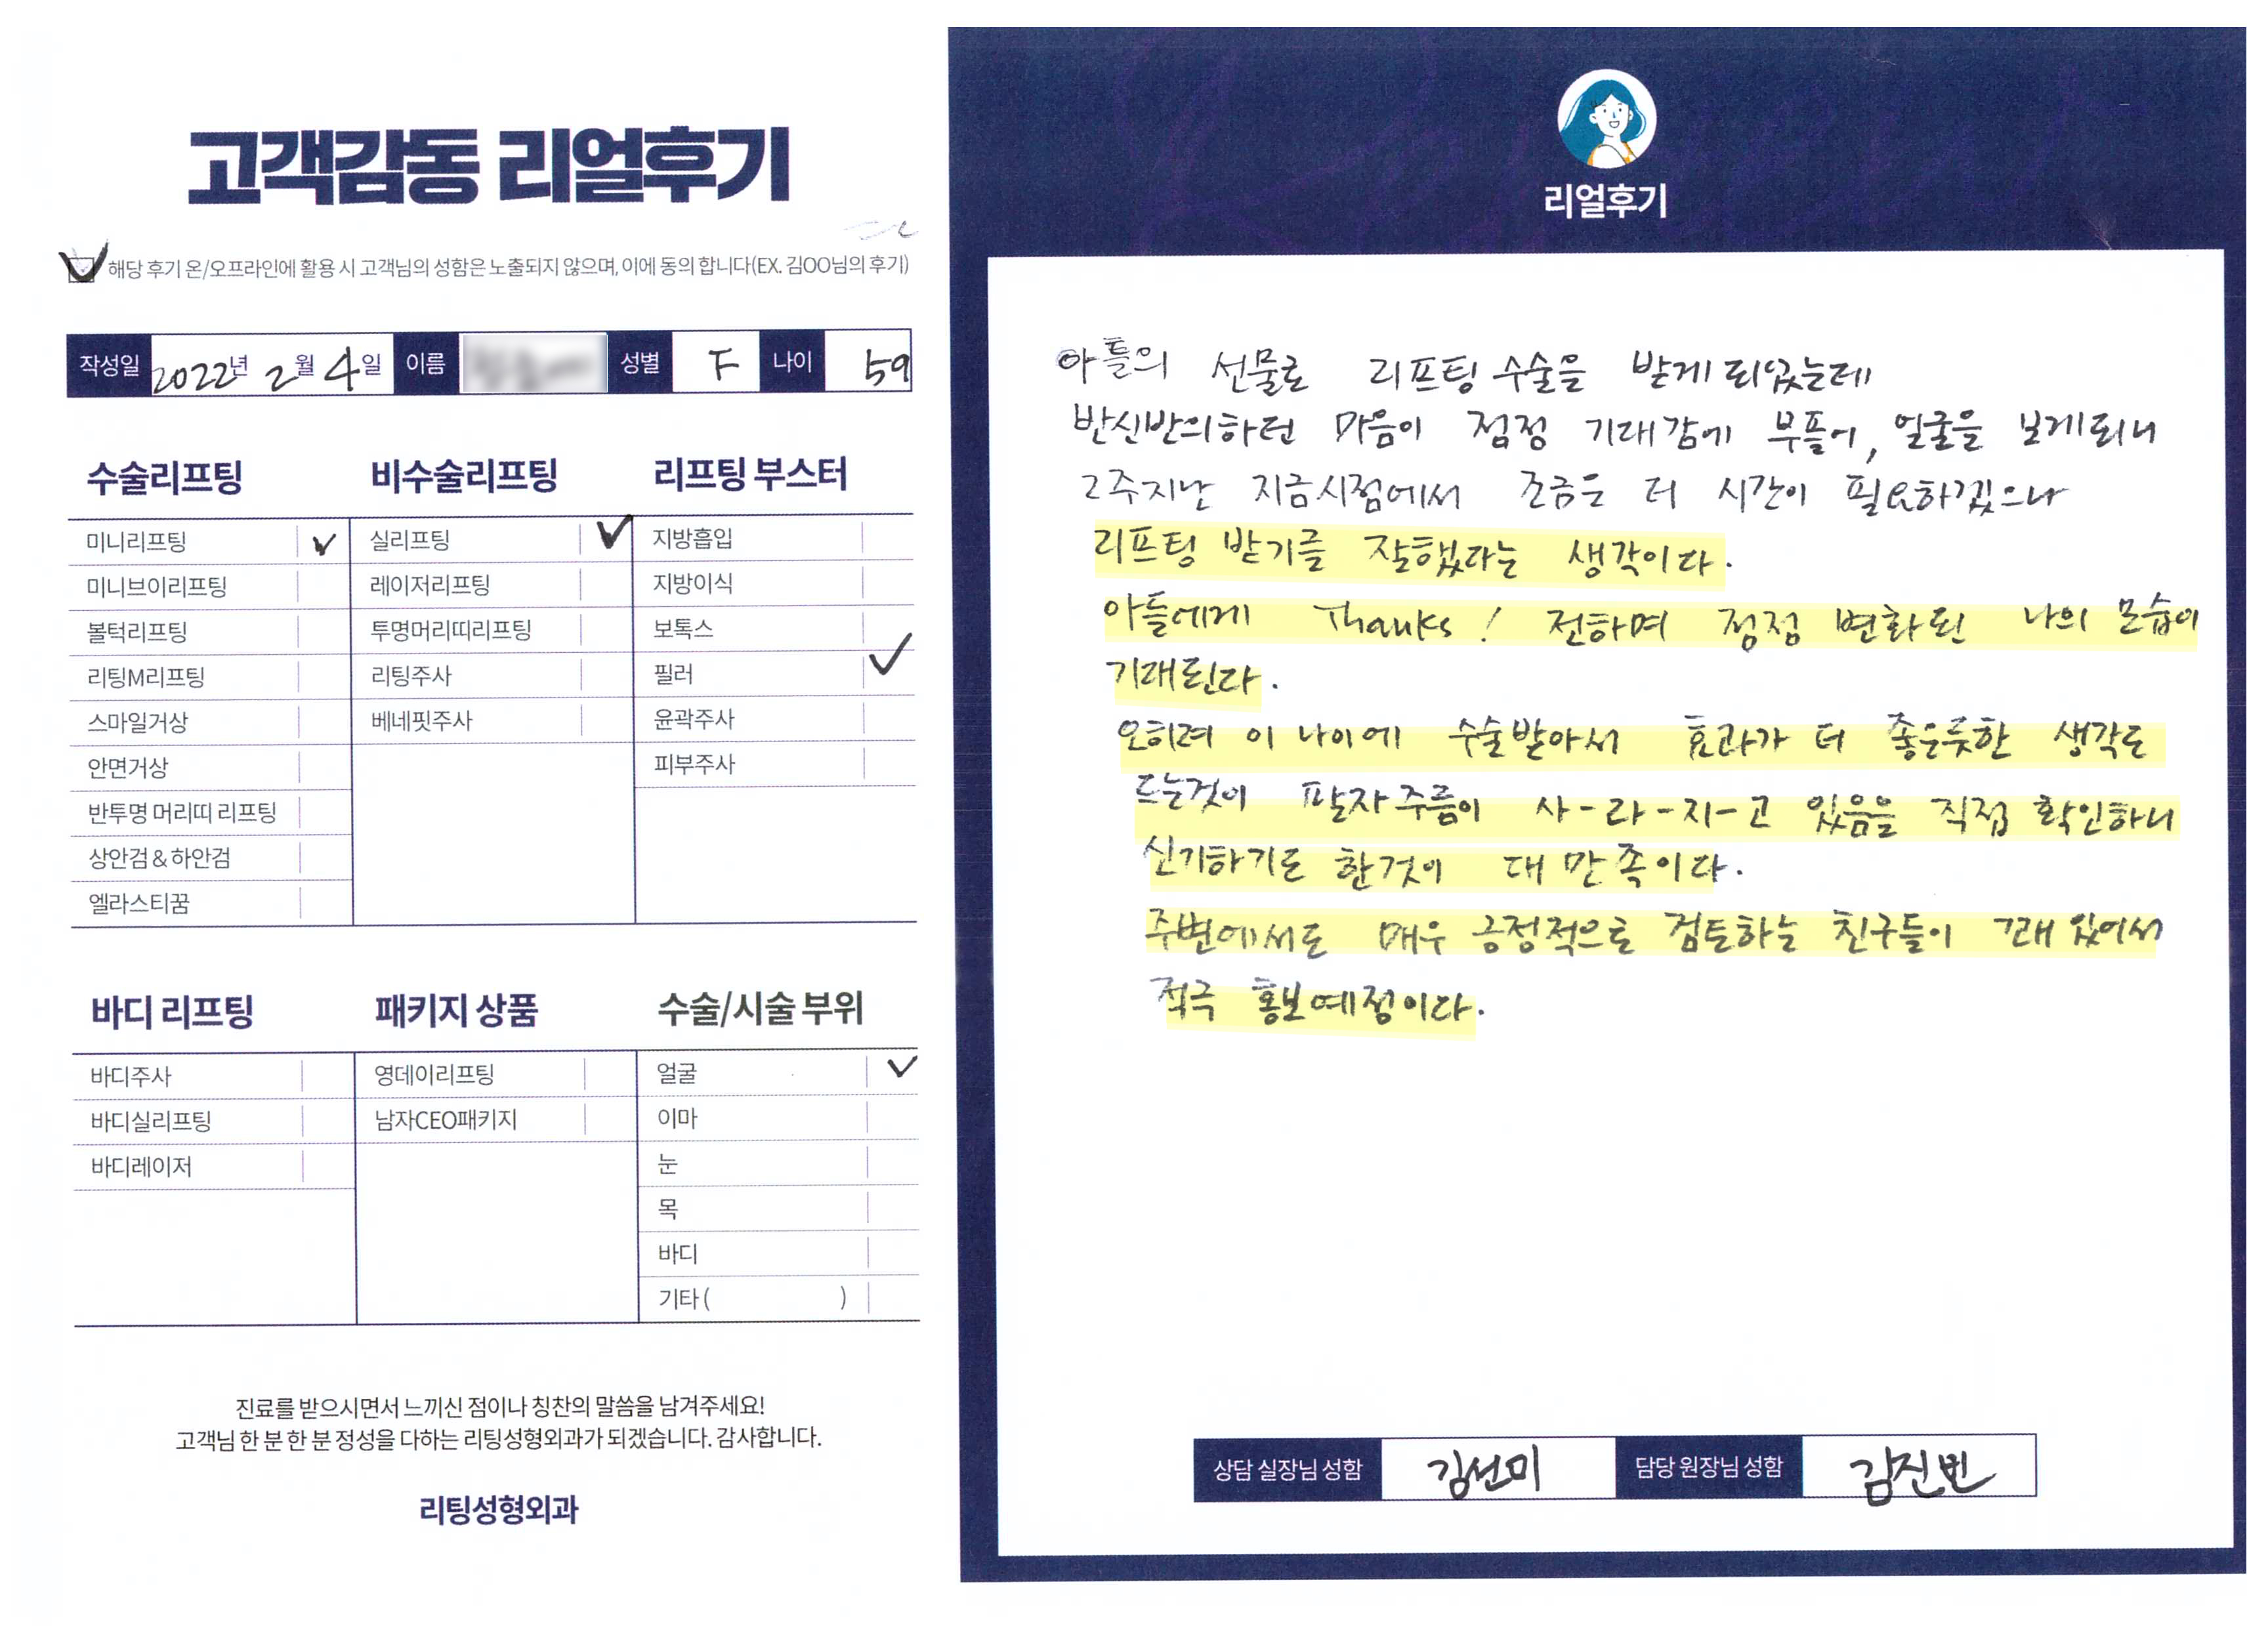 고객감동 리얼후기
해당 후기 온/오프라인에 활용 시 고객님의 성함은 노출되지 않으며, 이에 동의 합니다(EX. 김OO님의 후기)
작성일 2022년 2월 4일 이름 성별 F 나이 59
수술리프팅
미니리프팅
미니브이리프팅
볼턱리프팅
리팅M리프팅
스마일거상
안면거상
반투명 머리띠 리프팅
상안검 & 하안검
엘라스티꿈
비수술리프팅
실리프팅
레이저리프팅
투명머리띠리프팅
리팅주사
베네핏주사
리프팅 부스터
지방흡입
지방이식
보톡스
필러
윤곽주사
피부주사
바디 리프팅
바디주사
바디실리프팅
바디레이저
패키지 상품
영데이리프팅
남자CEO패키지
수술/시술 부위
얼굴
이마
눈
목
바디
기타 ( )
진료를 받으시면서 느끼신 점이나 칭찬의 말씀을 남겨주세요!
고객님 한 분 한 분 정성을 다하는 리팅성형외과가 되겠습니다. 감사합니다.
리팅성형외과
리얼후기
아들의 선물로 리프팅 수술을 받게 되었는데
반신반의하던 마음이 점점 기대감에 부풀어, 얼굴을 보게되니
2주지난 지금시점에서 조금은 더 시간이 필요하겠으나
리프팅 받기를 잘했다는 생각이다.
아들에게 Thanks! 전하며 점점 변화된 나의 모습이
기대된다.
오히려 이 나이에 수술받아서 효과가 더 좋은듯한 생각도
드는것이 팔자주름이 사-라-지-고 있음을 직접 확인하니
신기하기도 한것이 대 만족이다.
주변에서도 매우 긍정적으로 검토하는 친구들이 꽤 있어서
적극 홍보예정이다.
상담 실장님 성함 김선미 담당 원장님 성함 김진빈